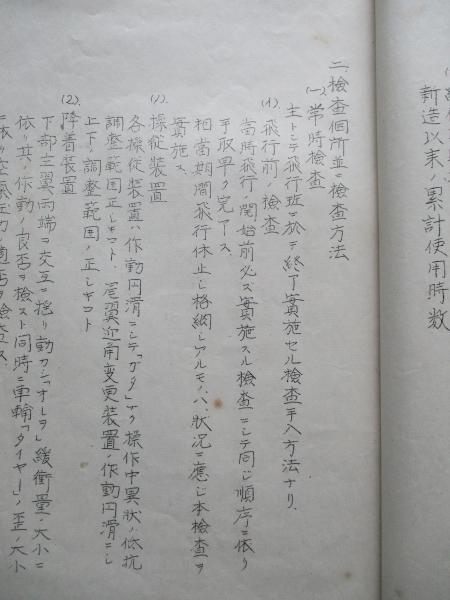 新造以来ノ累計使用時数
二、検査個所並ニ検査方法
(一)、常時検査
主トシテ飛行班ニ於テ終了実施セル検査手入方法ナリ、
(イ)、飛行前ノ検査
当時飛行ノ開始前必ズ実施スル検査ニシテ同ジ順序ニ依リ
手取早ク完了ス、
相当期間飛行休止シ格納シアルモノハ、状況ニ応ジ本検査ヲ
実施ス、
(1)、操縦装置
各操縦装置ハ作動円滑ニシテ「ガタ」ナク操作中異状ノ抵抗
調整範囲正シキコト、尾翼迎角変更装置ノ作動円滑ニシ
上下ノ調整範囲ノ正シキコト
(2)、降着装置
下部主翼両端ヲ交互ニ揺リ動カシ「オレヲ」緩衝量ノ大小ニ
依リ其ノ作動ノ良否ヲ検スト同時ニ車輪「タイヤー」ノ歪ノ大小
ニ依リ空気圧力ノ適否ヲ検査ス、